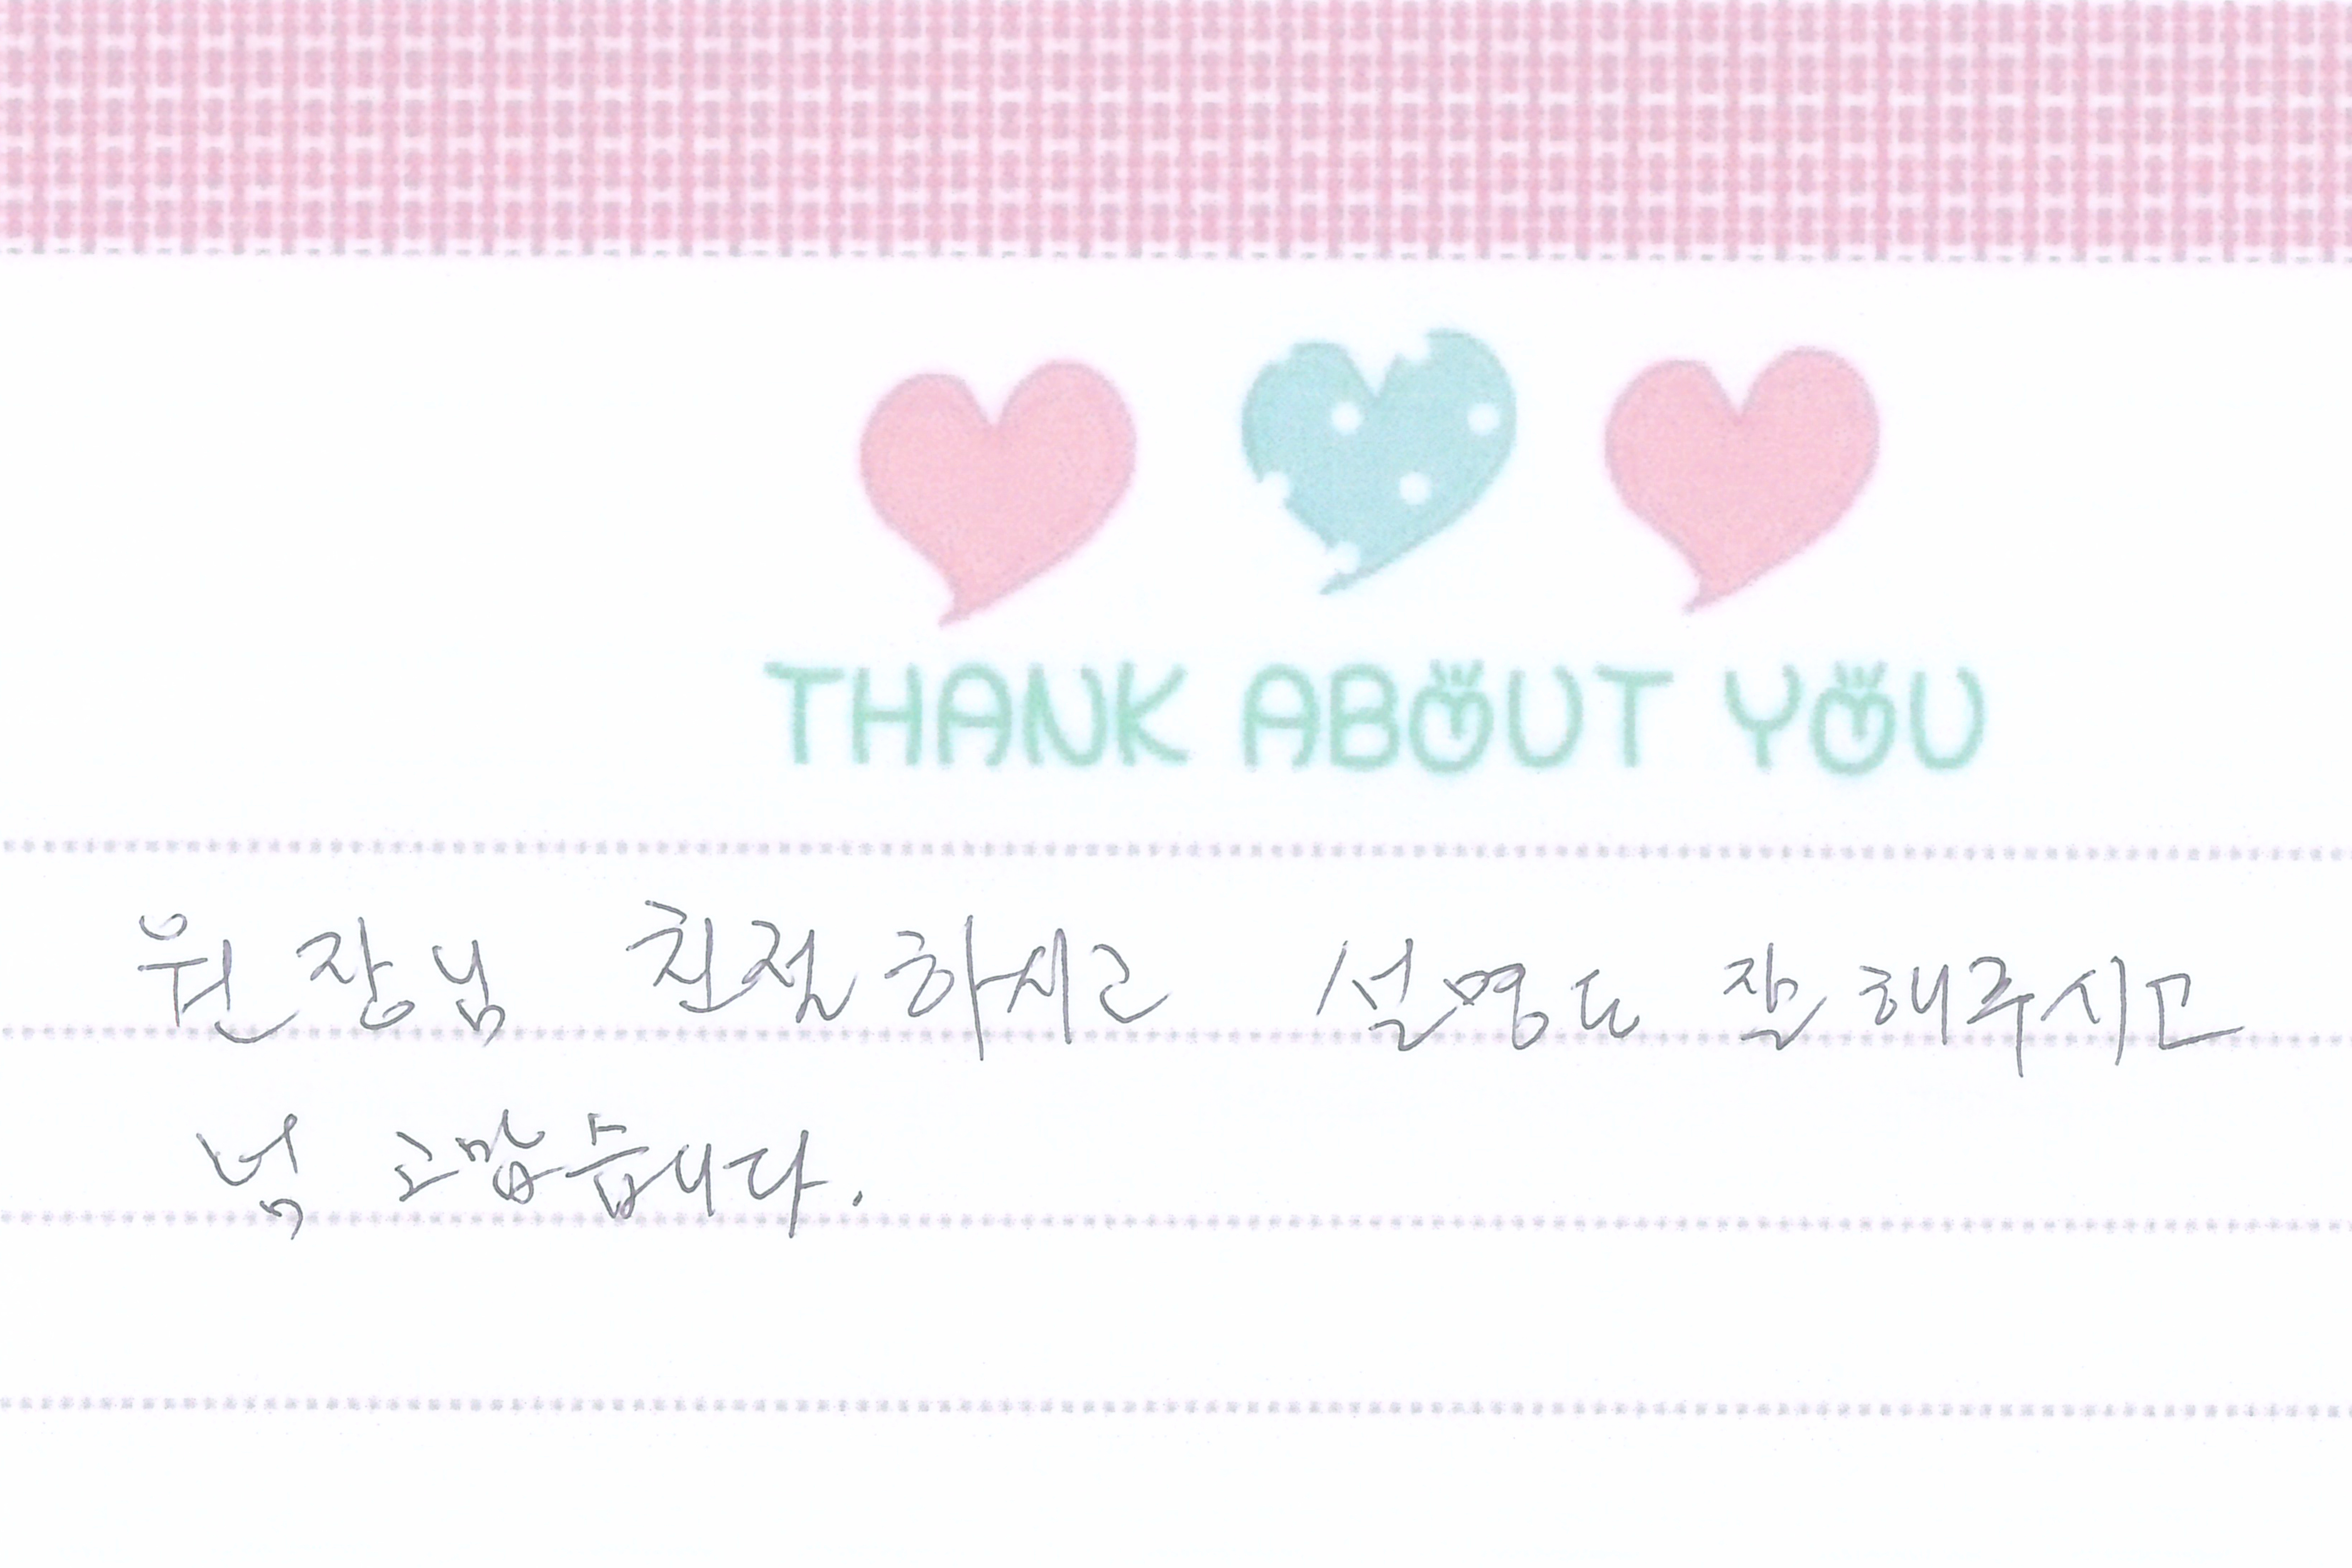 THANK ABOUT YOU
원장님 친절하시고 설명도 잘 해주시고
넘 고맙습니다.